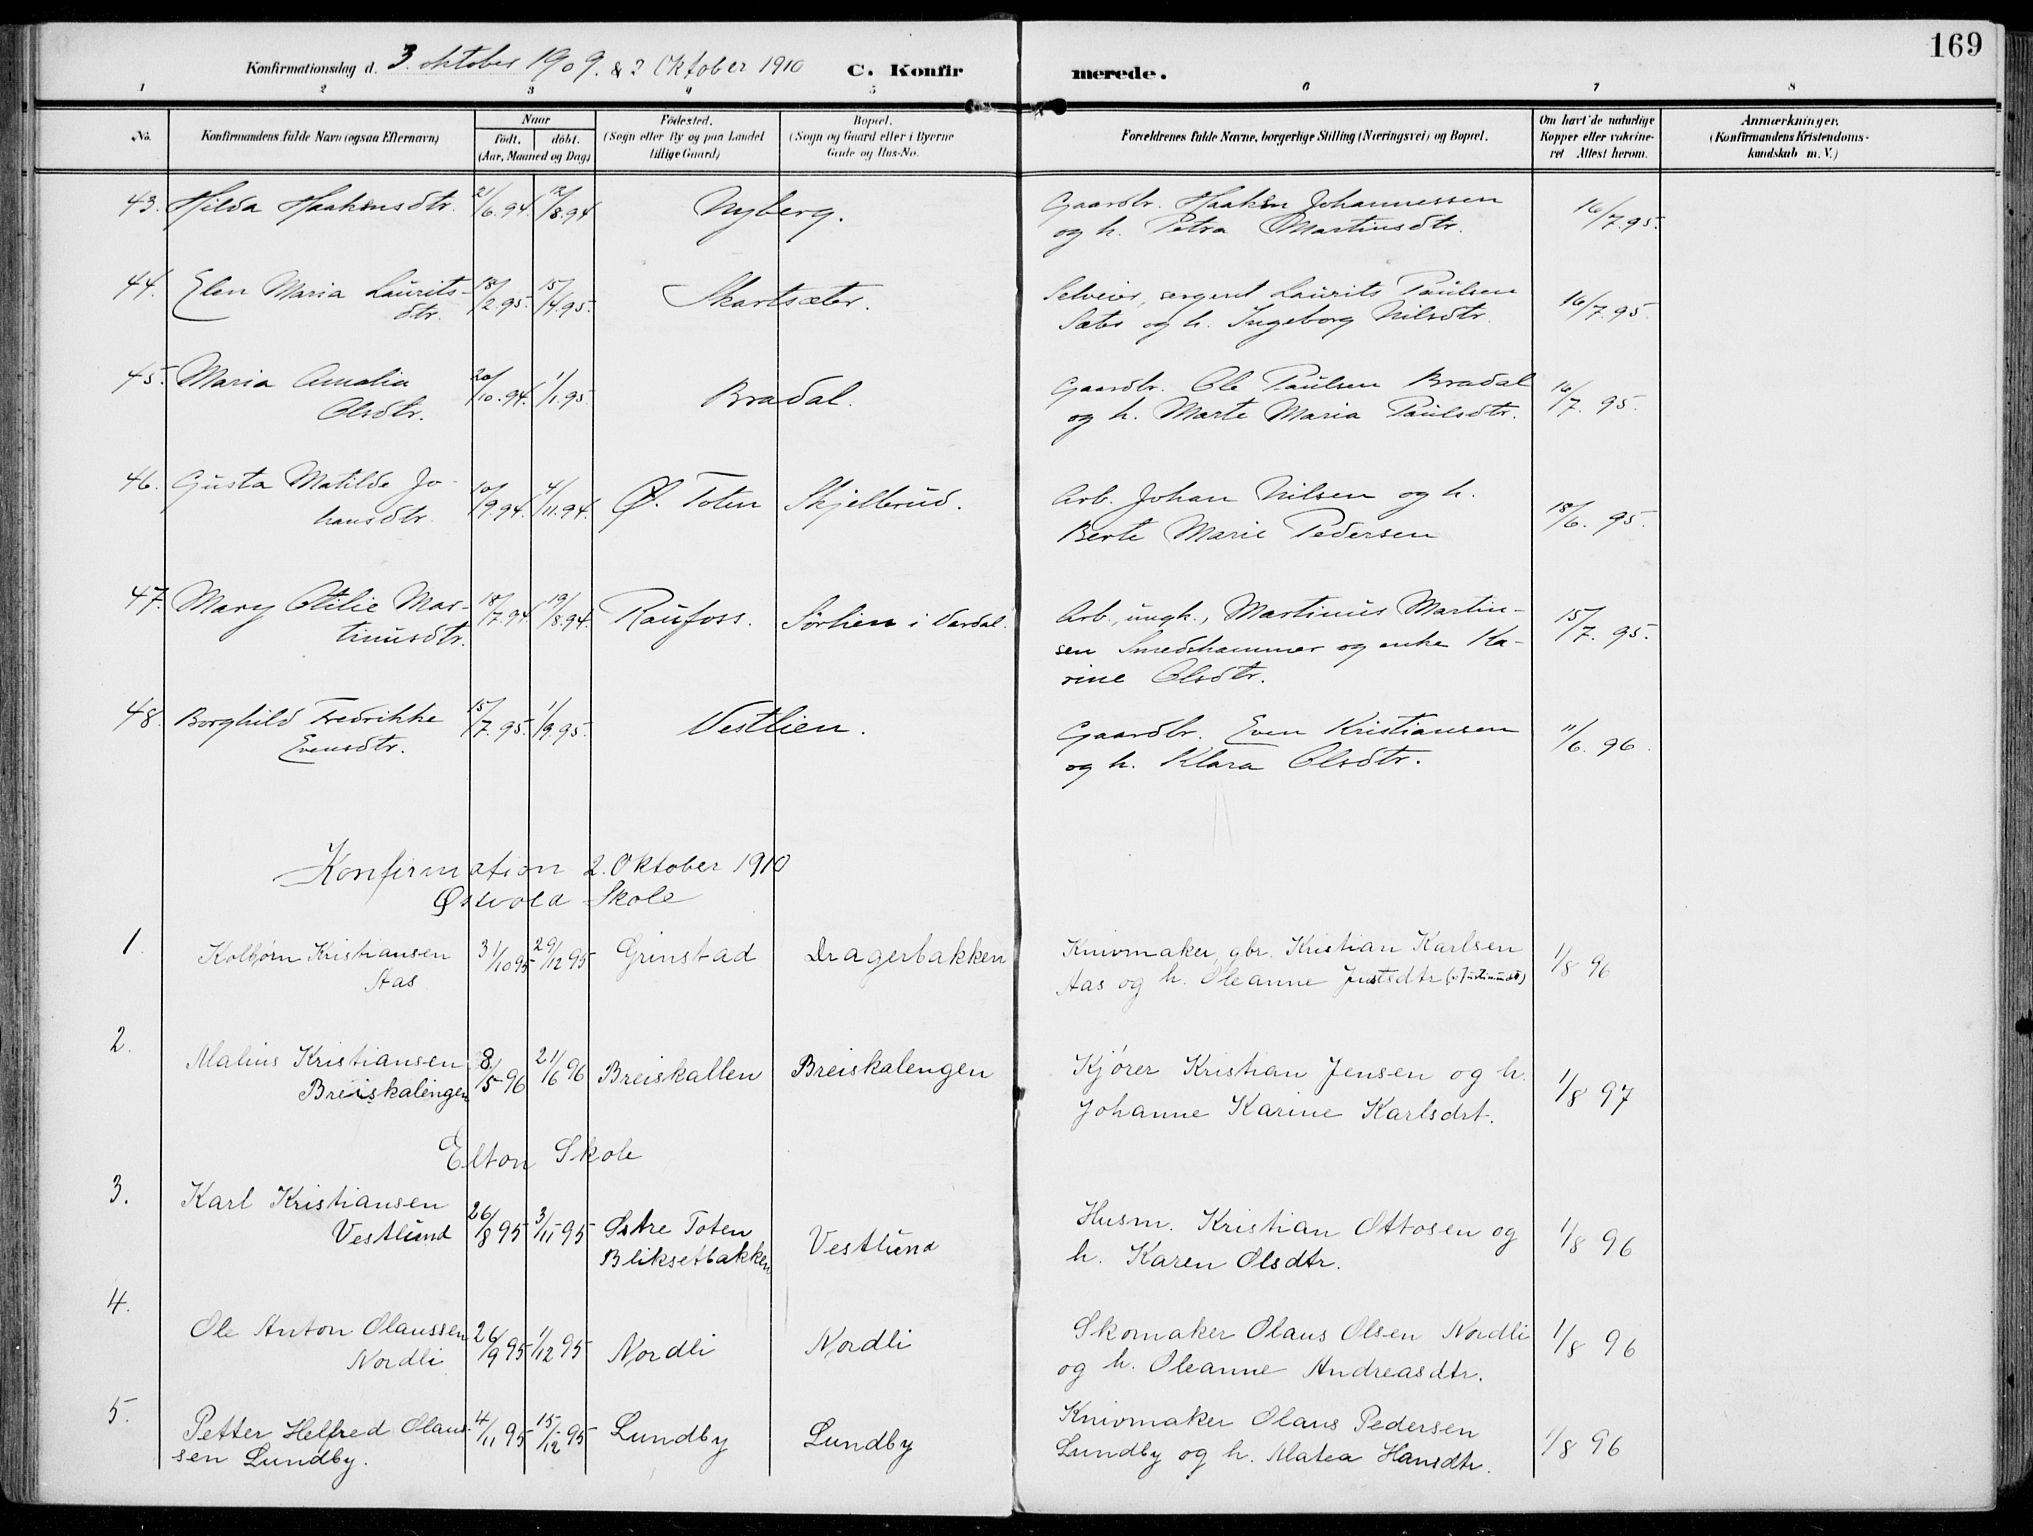 169
Konfirmationsdag d. 3. oktober 1909. & 2 Oktober 1910 C. Konfirmerede.
1 2 3 4 5 6 7 8
No. Konfirmandens fulde Navn (ogsaa Efternavn) Naar födt. döbt. (Aar, Maaned og Dag) Födested. (Sogn eller By og paa Landet tillige Gaard) Bopæl. (Sogn og Gaard eller i Byerne Gade og Hus-No. Forældrenes fulde Navne, borgerlige Stilling (Næringsvei) og Bopæl. Om havt de naturlige Kopper eller vakcineret Attest herom. Anmærkninger. (Konfirmandens Kristendomskundskab m. V.)
43. Hilda Haakensdtr. 21/6.94. 12/8.94 Nyberg. Gaardbr. Haaken Johannessen 16/7.95.
og h. Petra Martinsdtr.
44. Elen Maria Laurits- 18/2.95. 15/4.95. Skartsæter. Selveier, sergent Laurits Paulsen 16/7.95.
dtr. Sæter og h. Ingeborg Nilsdtr.
45. Maria Amalia 20/10.94. 1/1.95. Bradal. Gaardbr. Ole Paulsen Bradal 16/7. 95.
Olsdtr. og h. Marte Maria Paulsdtr.
46. Gusta Matilde Jo- 10/9.94. 4/11.94. Ø. Toten Skjelbrud. Arb. Johan Nilsen og h. 18/6. 95.
hansdtr. Berte Marie Pedersen
47. Mary Otilie Mar- 18/7.94. 19/8.94. Raufoss. Sørlien i Vardal. Arb., ungk., Martinus Martin- 15/7. 95.
tinusdtr. sen Smedshammer og enke Ka-
rine Olsdtr.
48. Borghild Fredrikke 15/7.95. 1/9.95. Vestlien. Gaardbr. Even Kristiansen 11/6. 96.
Evensdtr. og h. Klara Olsdtr.
Konfirmation 2. Oktober 1910
Østvold Skole
1. Kolbjørn Kristiansen 31/10 95 29/12 95 Grinstad Dragerbakken Knivmaker, gbr. Kristian Karlsen 1/8 96
Aas Aas og h. Oleanne Justsdtr
2. Malius Kristiansen 8/5 96 21/6 96 Breiskallen Breiskalengen Kjører Kristian Jensen og h. 1/8 97
Breiskalengen Johanne Karine Karlsdrt.
Elton Skole
3. Karl Kristiansen 26/8 95 3/11 95 Østre Toten Vestlund Husm. Kristian Ottosen og 1/8 96
Vestlund Bliksetbakken h. Karen Olsdtr.
4. Ole Anton Olaussen 26/9 95 1/12 95 Nordli Nordli Skomaker Olaus Olsen Nordli 1/8 96
Nordli og h. Oleanne Andreasdtr.
5. Petter Helfred Olaus- 4/11 95 15/12 95 Lundby Lundby Knivmaker Olaus Pedersen 1/8 96
sen Lundby. Lundby og h. Matea Hansdtr.